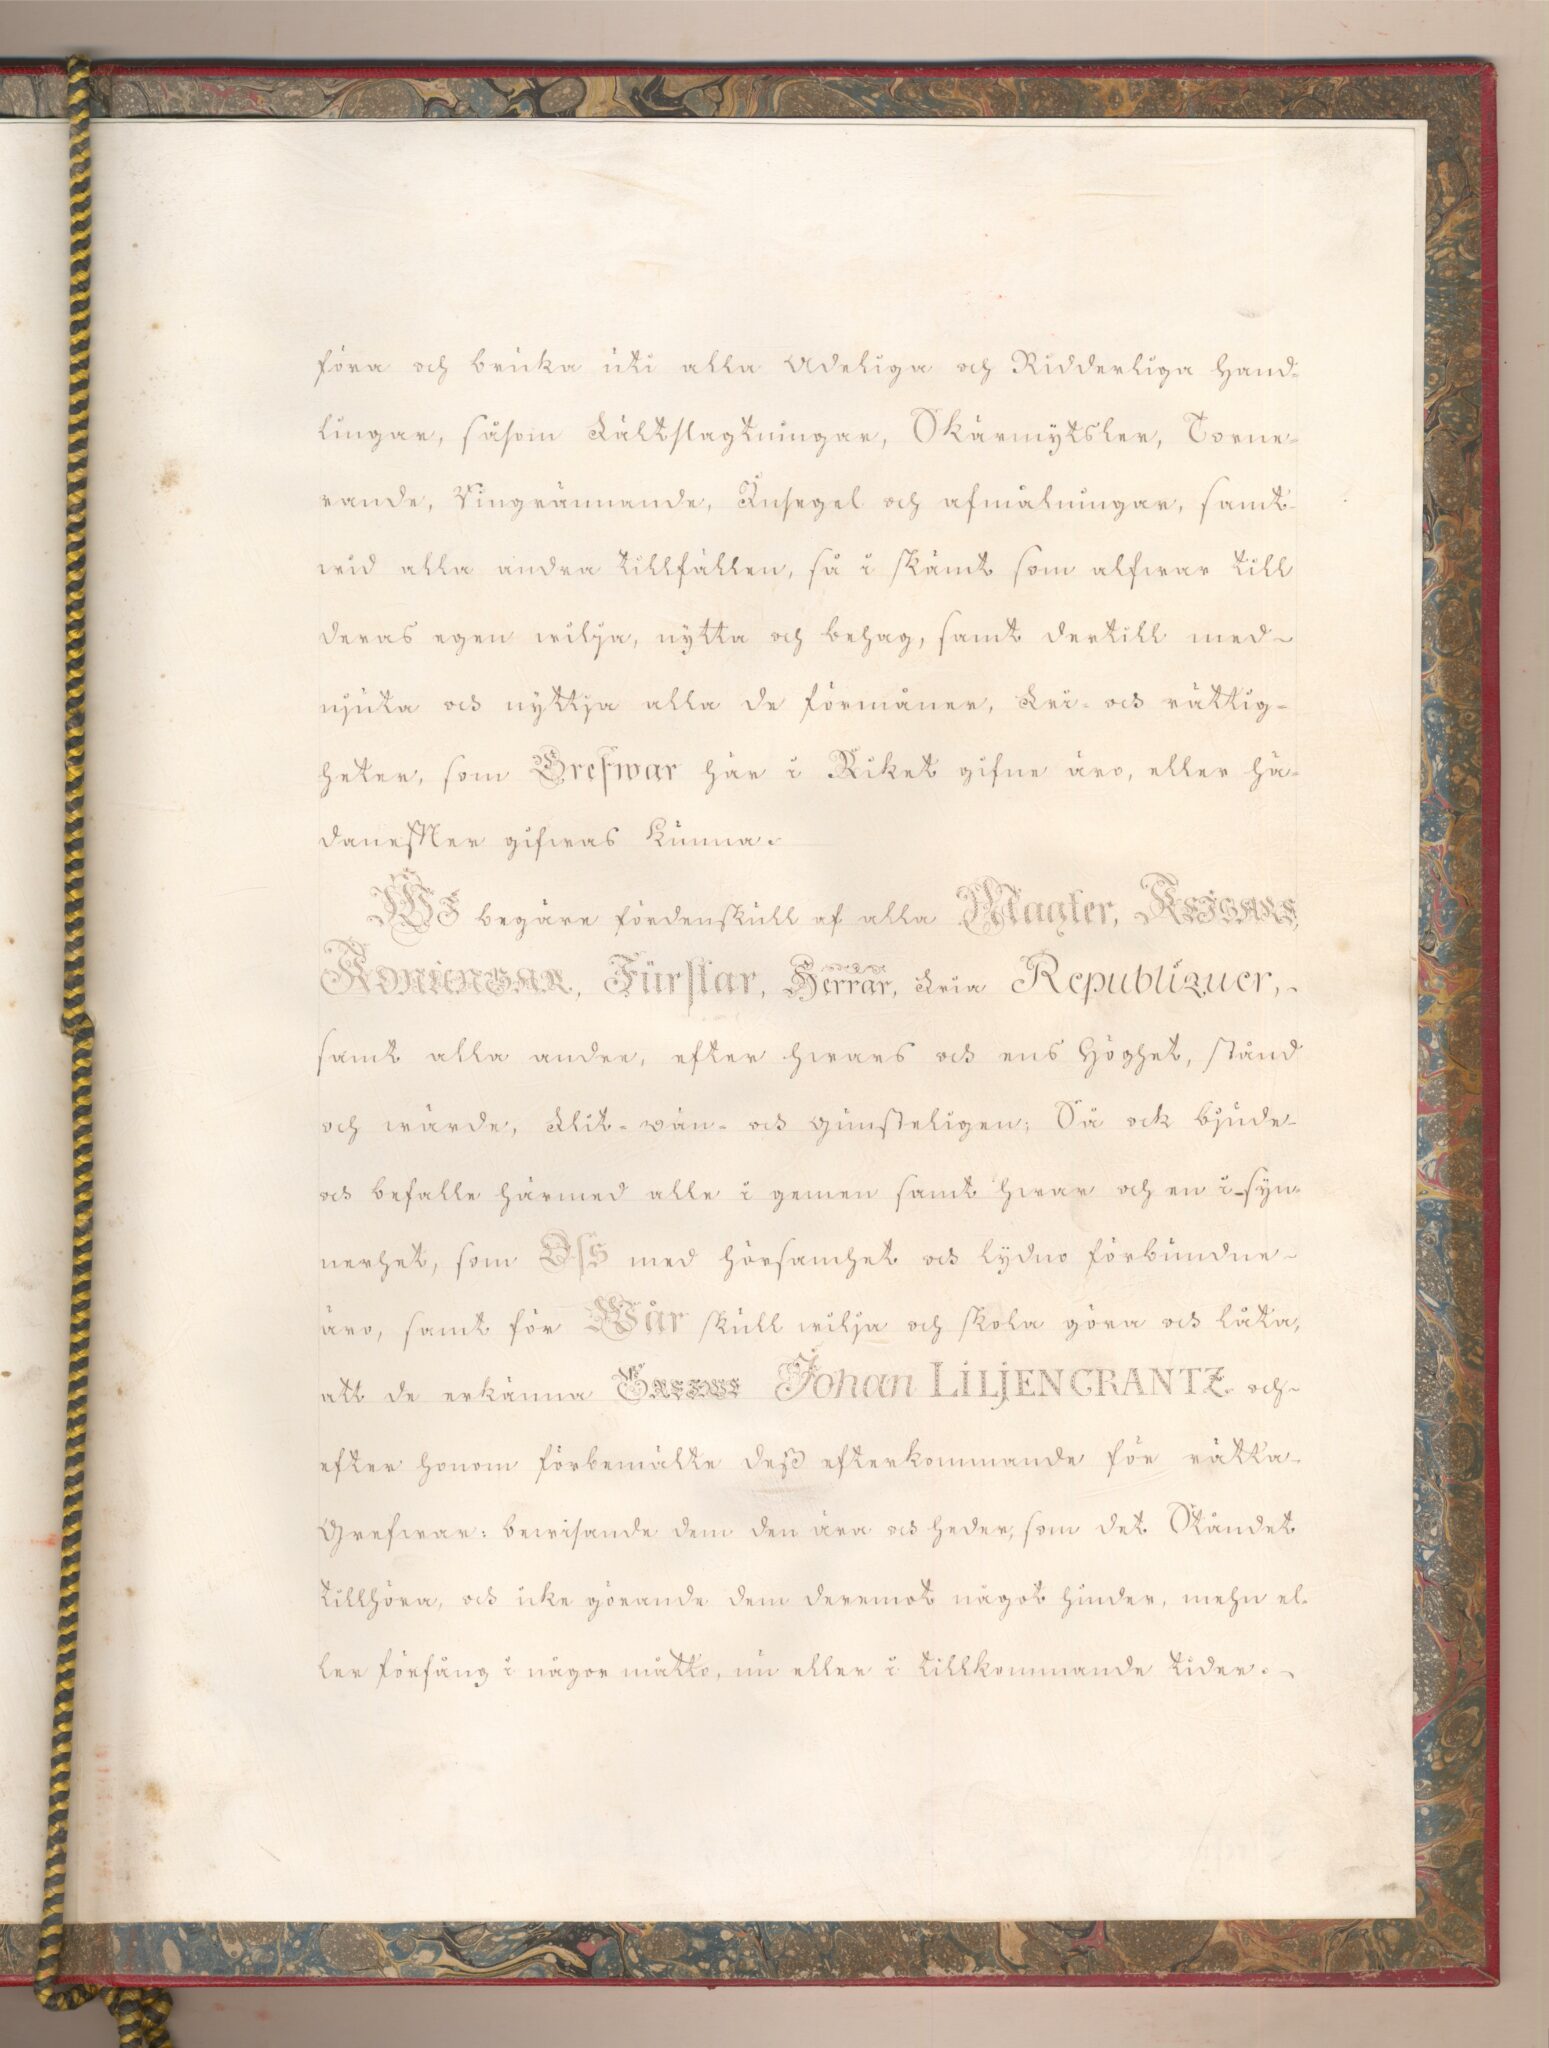 föra och bruka uti alla Adeliga och Ridderliga Hand-
lingar, såsom Fältslagtningar, Skärmytsler, Torne-
rande, Ringrännande, Insegel och afmålningar, samt
wid alla andra tillfällen, så i skämt som alfwar till
deras egen wilja, nytta och behag, samt dertill med
njuta och nyttja alla de förmåner, Fri- och rättig-
heter, som Grefwar här i Riket gifne äro, eller hä-
danefter gifwas kunna.
WI begäre fördenskull af alla Magter, KEJSARE,
KONUNGAR, Furstar, Herrar, Fria Republiquer,
samt alla andre, efter hwars och ens Höghet, stånd
och wärde, Flit- vän- och gunsteligen; Så ock bjude
och befalle härmed alle i gemen samt hwar och en i syn-
nerhet, som Oss med hörsamhet och lydno förbundne
äro, samt för Wår skull wilja och skola göra och låta,
att de erkänna GREFWE Johan LILJENCRANTZ och
efter honom förbemälte deß efterkommande för rätta
Grefwar: bewisande dem den ära och heder, som det Ståndet
tillhöra, och icke görande dem deremot något hinder, mehn el-
ler förfång i någor måtto, nu eller i tillkommande tider.